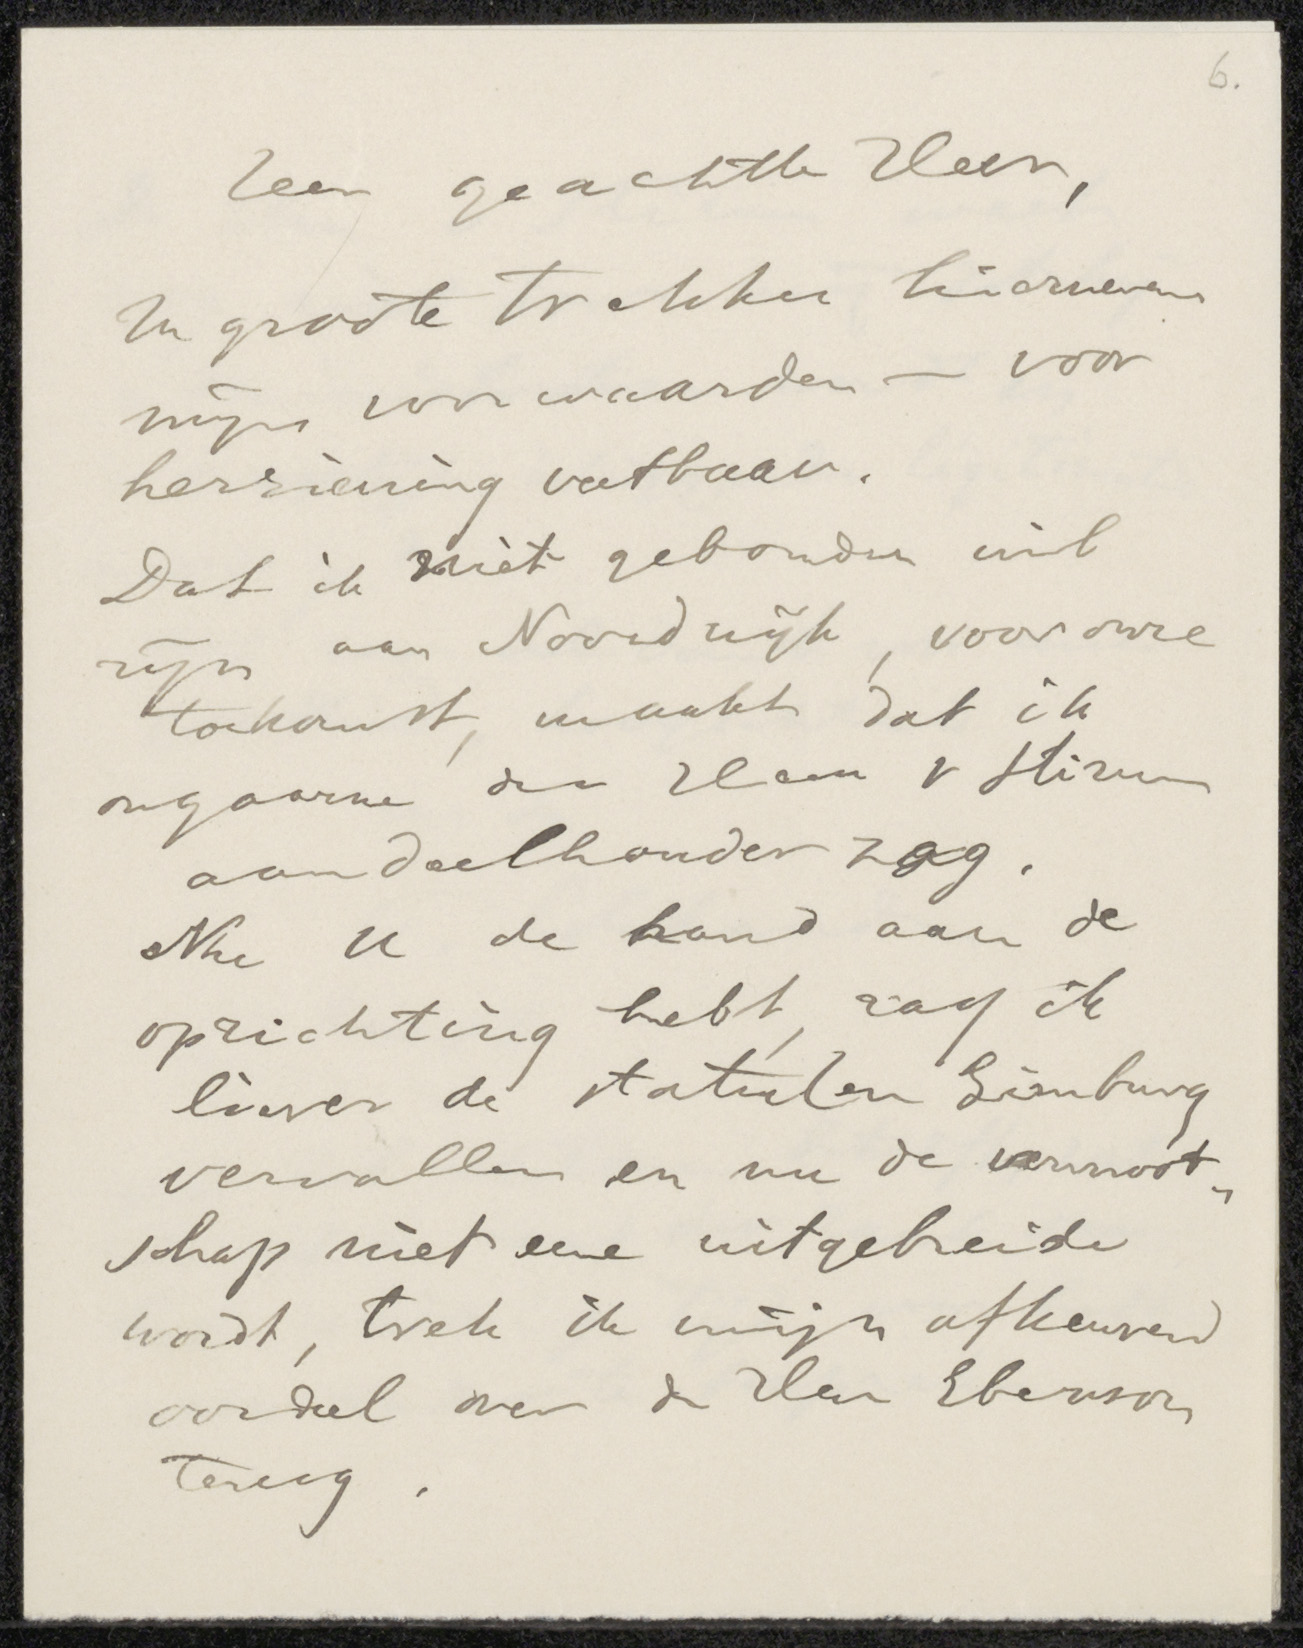 6.
Zeer geachte Heer,
In groote trekken hiernevens
mijn voorwaarden — voor
herziening vatbaar.
Dat ik niet gebonden wil
zijn aan Noordwijk, voor onze
toekomst, maakt dat ik
ongaarne den Heer v Stirum
aandeelhouder zag.
Nu U de hand aan de
oprichting hebt, zag ik
liever de statuten Limburg
vervallen en nu de vennoot„
schap niet eene uitgebreide
wordt, trek ik mijn afkeurend
oordeel over de Heer Ebenson
terug.